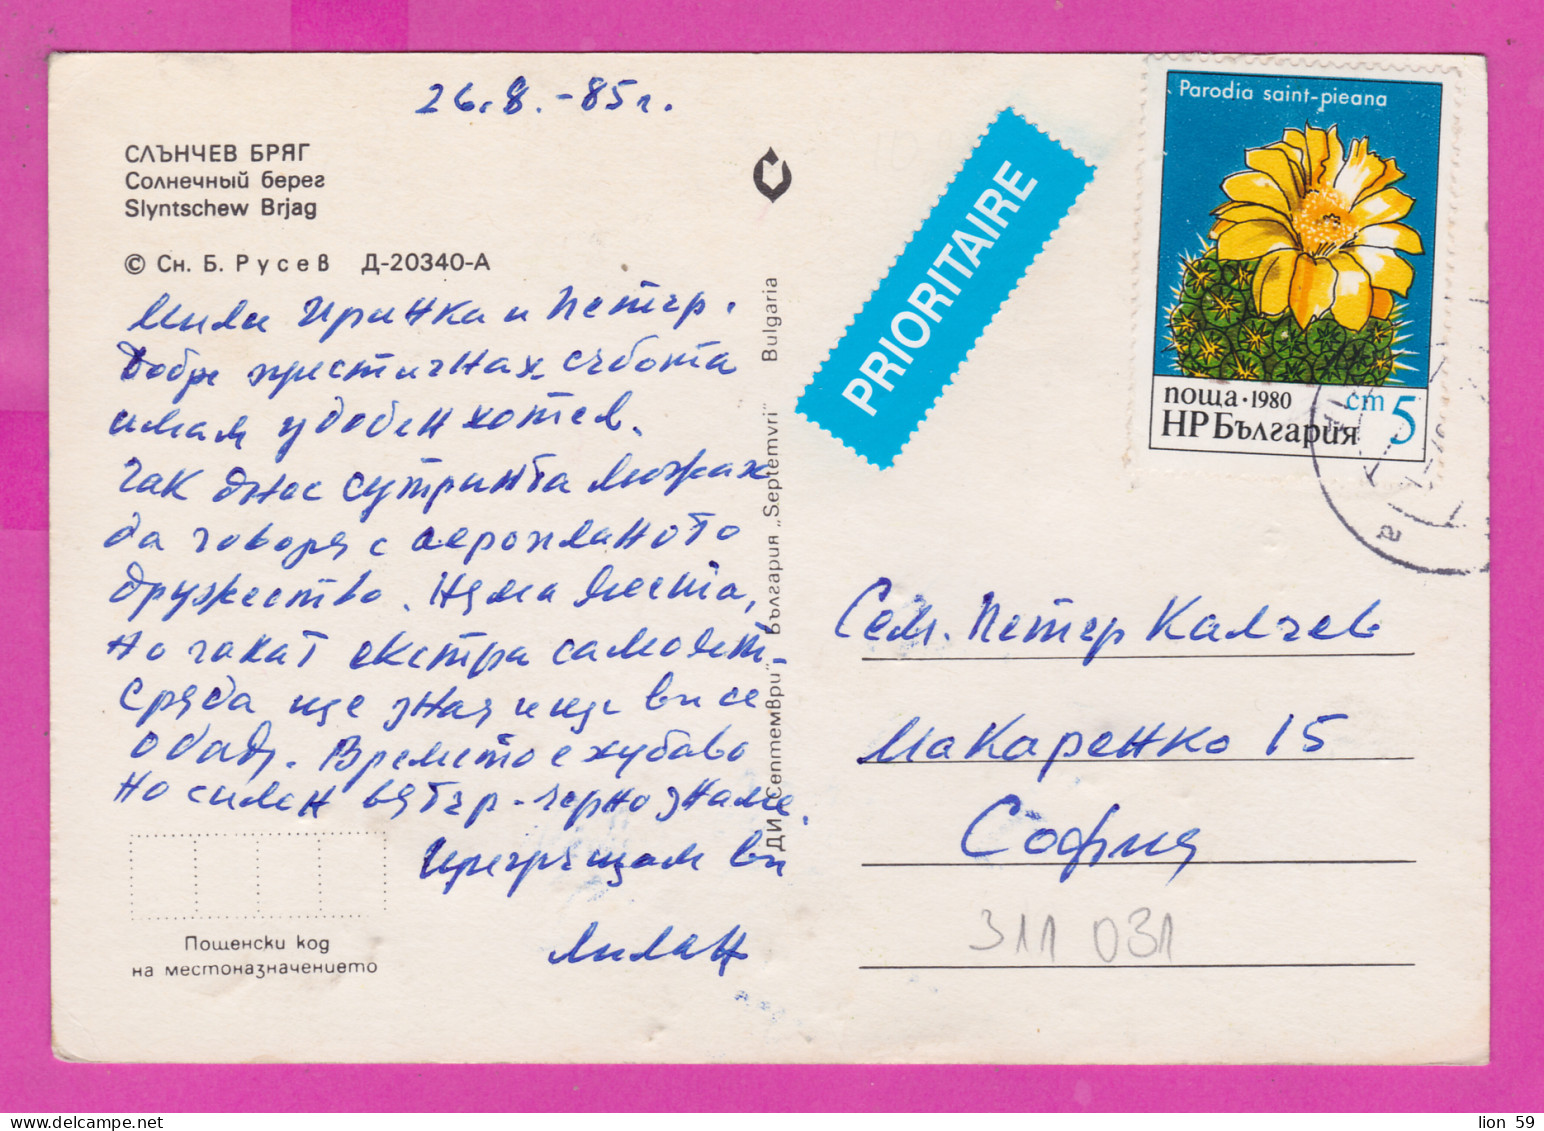 26.8.-85г.
СЛЪНЧЕВ БРЯГ
Солнечный берег
Slyntschew Brjag
© Сн. Б. Русев Д-20340-А
Мили Иринка и Петър.
Добре пристигнах събота
имам удобен хотел.
Чак днес сутринта можах
да говоря с аеропланото
дружество. Няма места,
но чакат екстра самолет-
сряда ще зная и ще ви се
обадя. Времето е хубаво
но силен вятър-черно знаме.
Прегръщам ви
Милан
Пощенски код
на местоназначението
ДИ „Септември" България „Septemvri" Bulgaria
PRIORITAIRE
Parodia saint-pieana
поща·1980 ст 5
НРБългария
Сем. Петър Калчев
Макаренко 15
София
311 031
lion 59